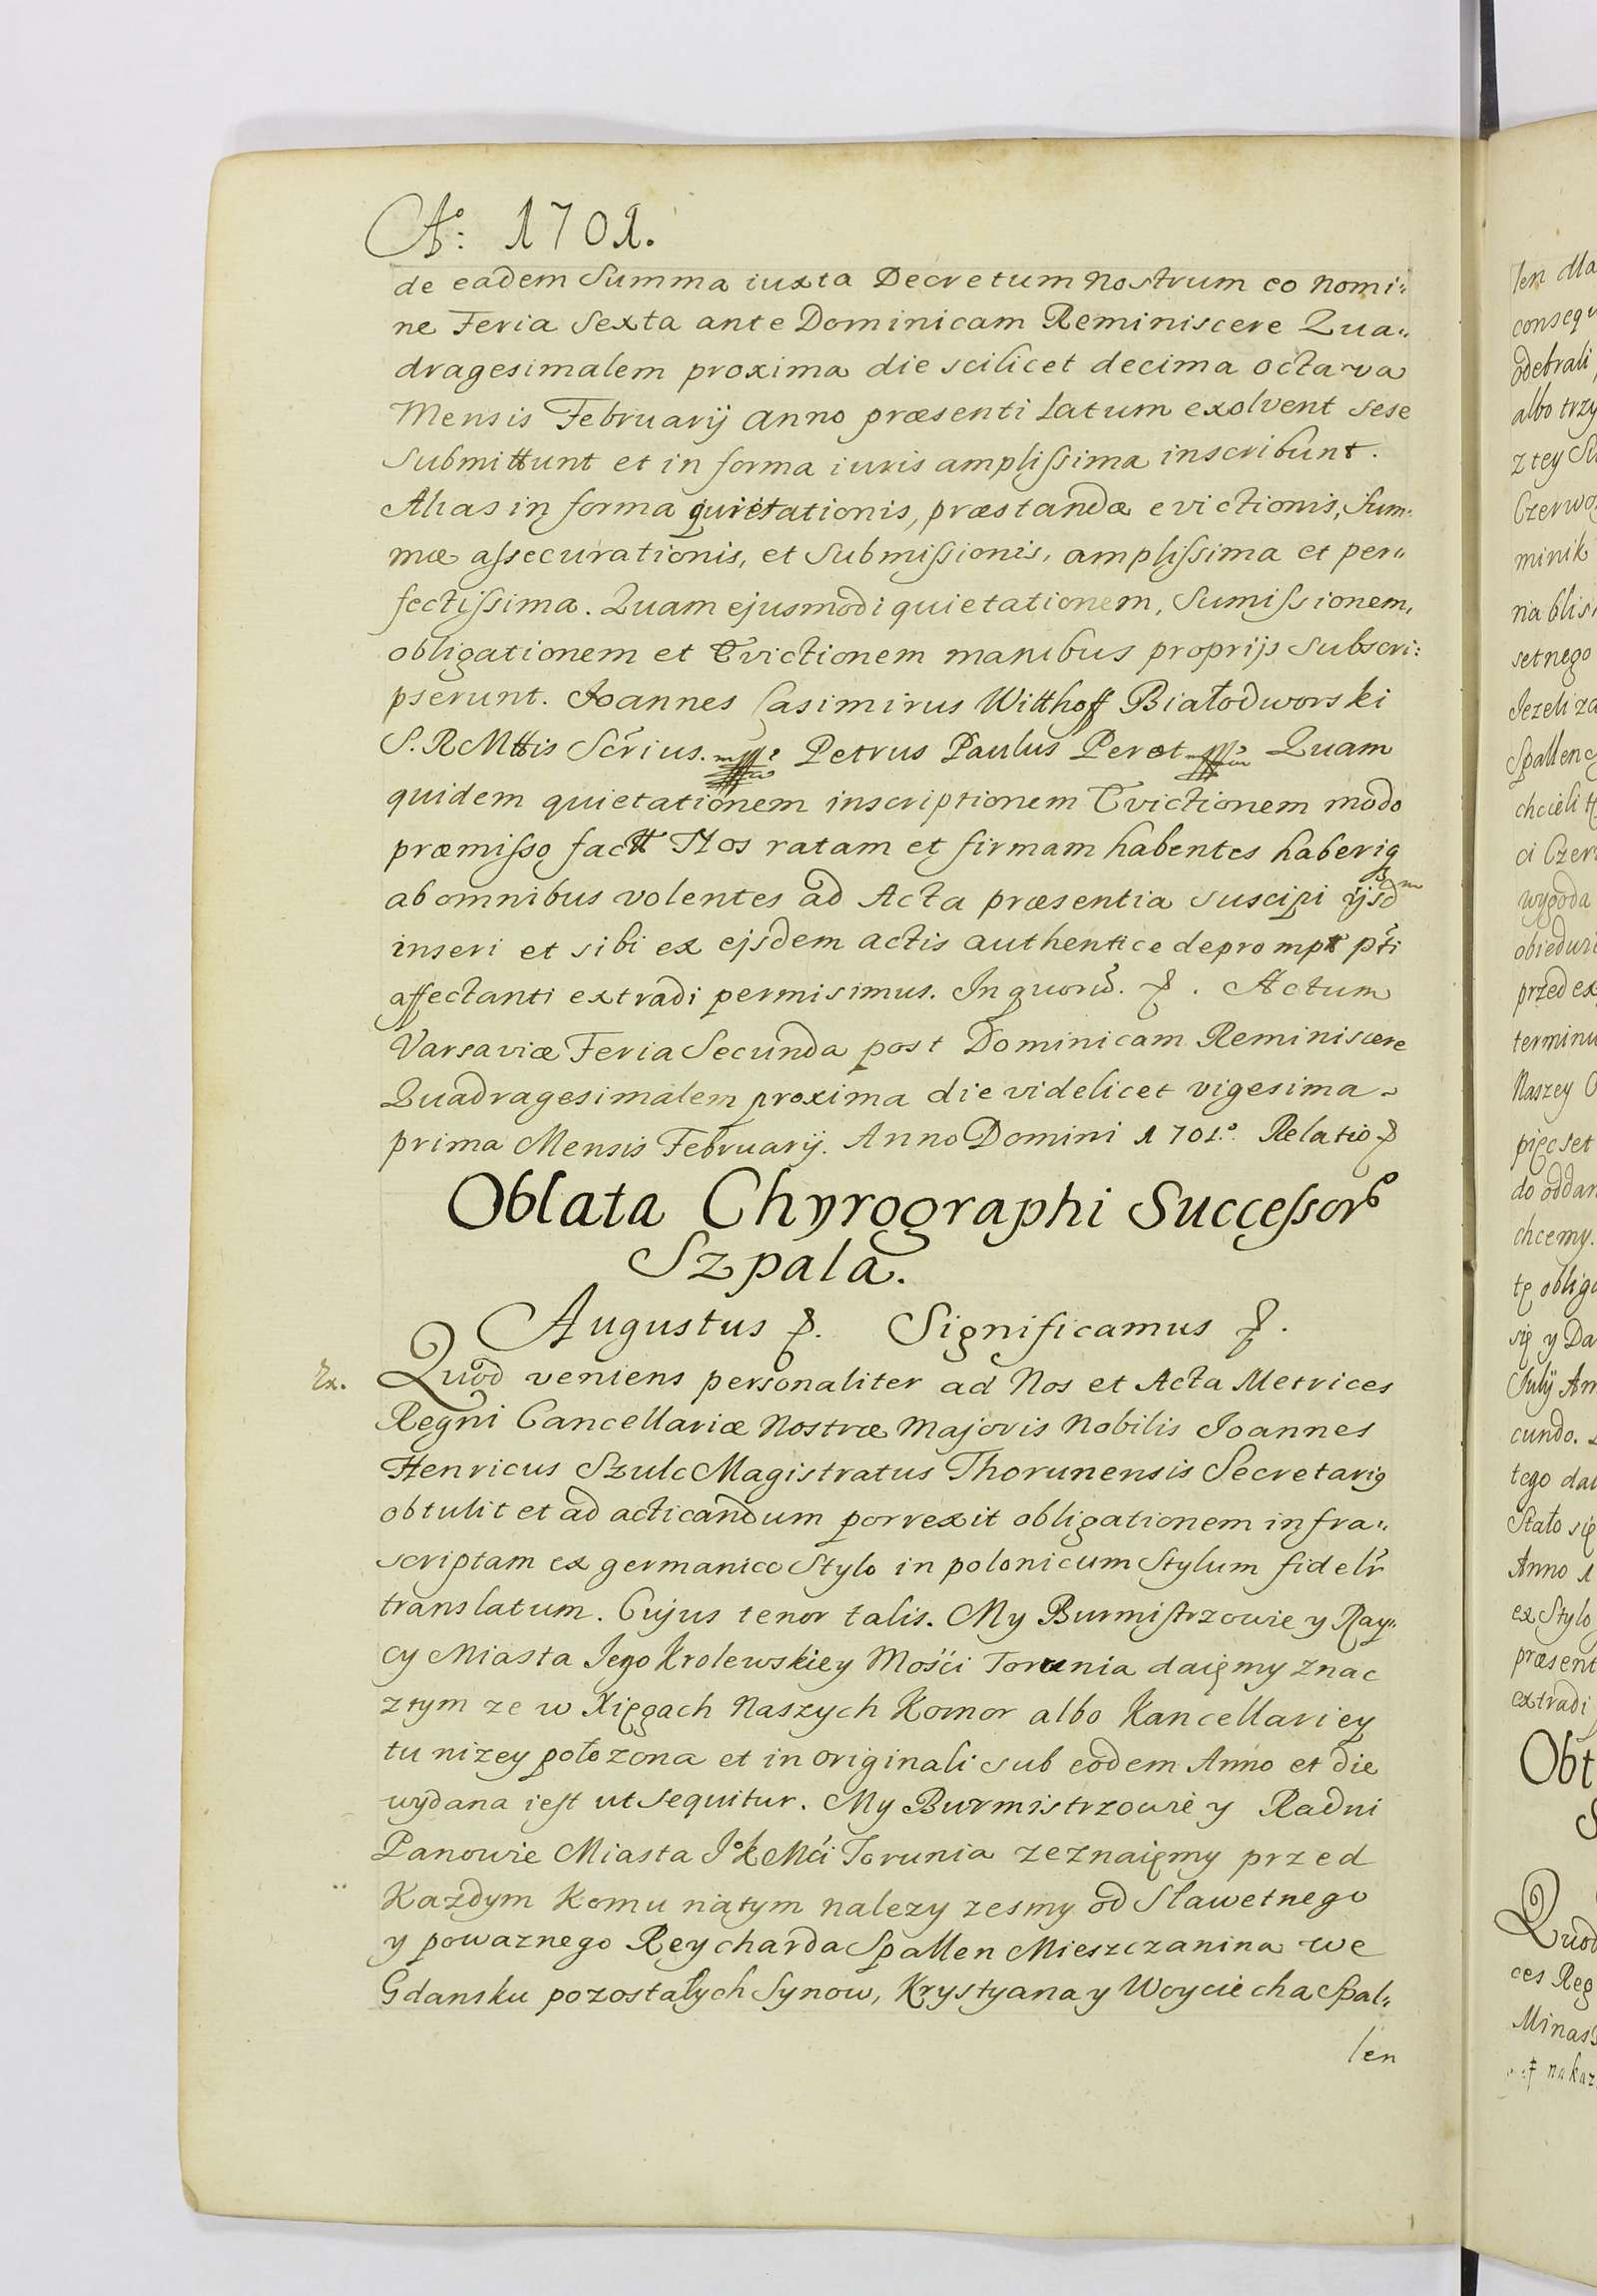 Aº: 1701.
de eadem Summa iuxta Decretum Nostrum eo Nomi:
ne Feria Sexta ante Dominicam Reminiscere Qua:
dragesimalem proxima die scilicet decima octava
Mensis Februarij Anno præsenti Latum exolvent sese
Submittunt et in forma iuris amplissima inscribunt.
Alias in forma quietationis, præstandæ evictionis, Sum:
mæ assecurationis, et Submissionis, amplissima et per:
fectissima. Quam ejusmodi quietationem, Sumissionem,
obligationem et Evictionem manibus proprijs Subscri:
pserunt. Joannes Casimirus Witthoff Białodworski
S. R Mttis Scrius. Petrus Paulus Peret Quam
quidem quietationem inscriptionem Evictionem modo
præmisso factt Nos ratam et firmam habentes haberiq
ab omnibus volentes ad Acta præsentia suscipi ijsdm
inseri et sibi ex ejsdem actis authentice deprompt pti
affectanti extradi permisimus. In quorũ. Actum
Varsaviæ Feria Secunda post Dominicam Reminiscere
Quadragesimalem proxima die videlicet vigesima
prima Mensis Februarij. Anno Domini 1701º. Relatio
Oblata Chyrographi Successor
Szpala.
Augustus Significamus
Ex. Quod veniens personaliter ad Nos et Acta Metrices
Regni Cancellariæ Nostræ Majoris Nobilis Joannes
Henricus Szulc Magistratus Thorunensis Secretarig
obtulit et ad acticandum porrexit obligationem infra:
scriptam ex germanico Stylo in polonicum Stylum fidelr
translatum. Cujus tenor talis. My Burmistrzowie y Ray:
cy Miasta Jego Krolewskiey Mości Torunia daięmy Znac
ztym ze w Xięgach Naszych Komor albo Kancellariey
tu nizey połozona et in originali sub eodem Anno et die
wydana iest ut sequitur. My Burmistrzowie y Radni
Panowie Miasta JºK Mći Torunia zeznaięmy przed
Kazdym Komu natym nalezy zesmy od Sławetnego
y powaznego Reycharda Spallen Mieszczanina we
Gdansku pozostałych Synow, Krystyana y Woyciecha Spal:
len
len dla
consequ
odebrali
albo trzy
z tey Su
Czerwo
minik
ria blis
setnego
Jezeli za
Spallen
chcieli
ci Czer
wygoda
obieduie
przed ex
terminu
Naszey
pięcset
do oddan
chcemy.
tę obliga
się y Da
July An
cundo.
tego dal
Stało się
Anno 1
ex Stylo
præsent
extradi
Obt
S
Quod
ces Reg
Minas
nakaz